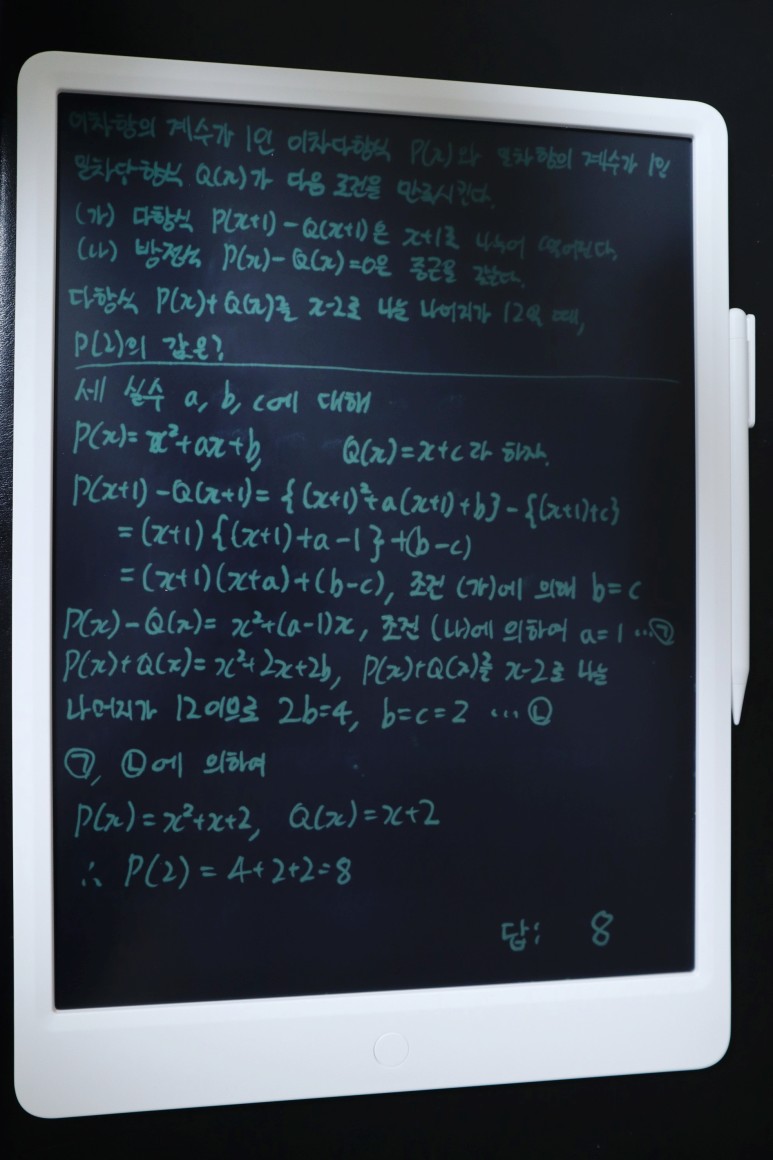 이차항의 계수가 1인 이차다항식 P(x)와 일차항의 계수가 1인
일차다항식 Q(x)가 다음 조건을 만족시킨다.
(가) 다항식 P(x+1)-Q(x+1)은 x+1로 나누어 떨어진다.
(나) 방정식 P(x)-Q(x)=0은 중근을 갖는다.
다항식 P(x)+Q(x)를 x-2로 나눈 나머지가 12일 때,
P(2)의 값은?
세 실수 a, b, c에 대해
P(x)=x²+ax+b, Q(x)=x+c라 하자.
P(x+1)-Q(x+1)={(x+1)²+a(x+1)+b}-{(x+1)+c}
=(x+1){(x+1)+a-1}+(b-c)
=(x+1)(x+a)+(b-c), 조건 (가)에 의해 b=c
P(x)-Q(x)=x²+(a-1)x, 조건 (나)에 의하여 a=1 …㉠
P(x)+Q(x)=x²+2x+2b, P(x)+Q(x)를 x-2로 나눈
나머지가 12이므로 2b=4, b=c=2 …㉡
㉠, ㉡에 의하여
P(x)=x²+x+2, Q(x)=x+2
∴ P(2)=4+2+2=8
답: 8